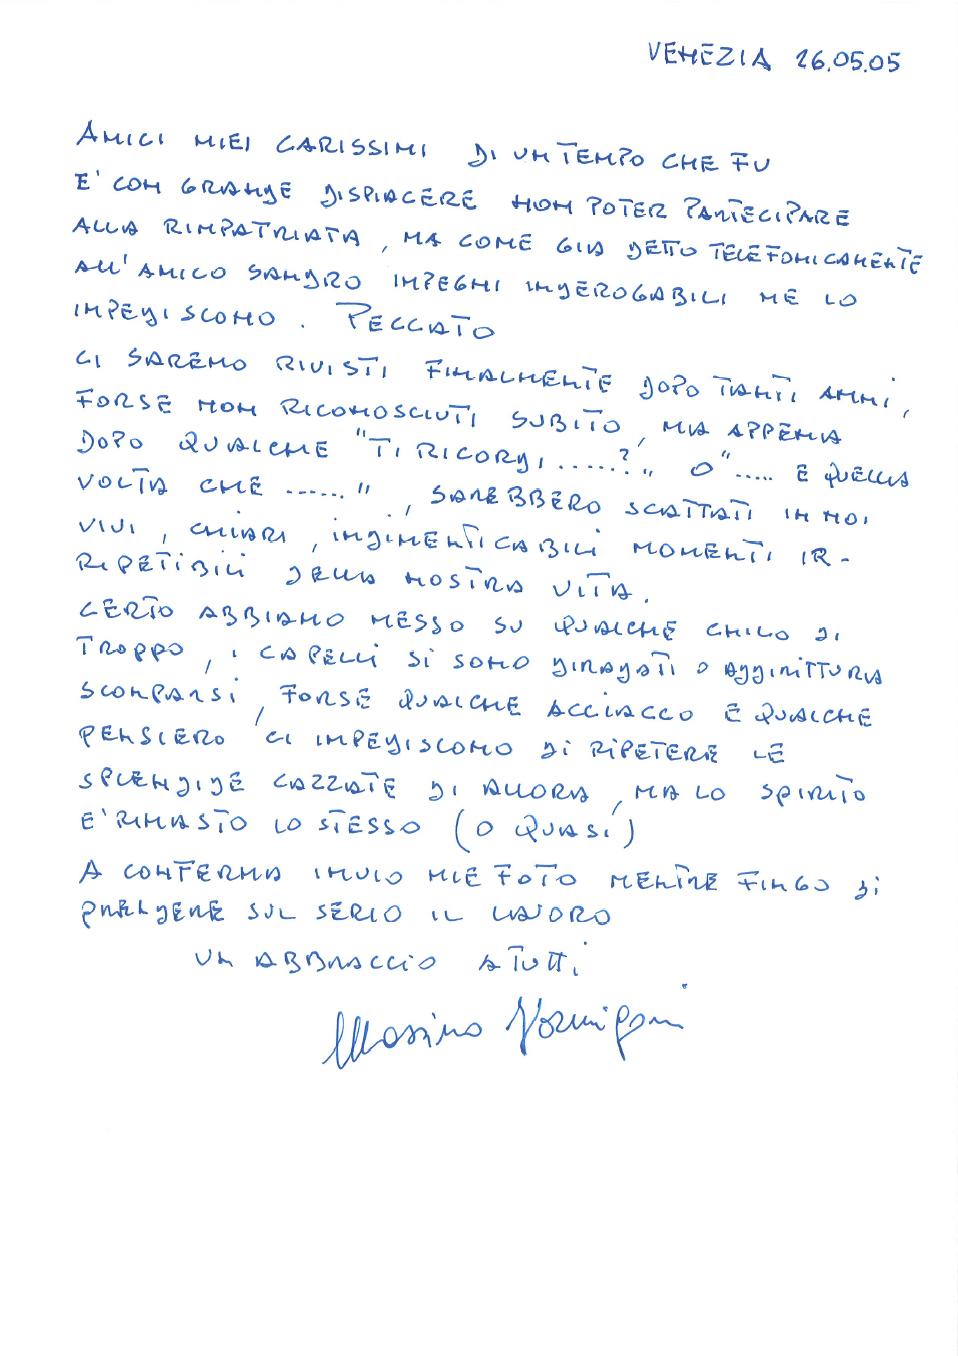 VENEZIA 26.05.05
AMICI MIEI CARISSIMI DI UN TEMPO CHE FU
E' CON GRANDE DISPIACERE NON POTER PARTECIPARE
ALLA RIMPATRIATA, MA COME GIA DETTO TELEFONICAMENTE
ALL'AMICO SANDRO IMPEGNI INDEROGABILI ME LO
IMPEDISCONO. PECCATO
CI SAREMO RIVISTI FINALMENTE DOPO TANTI ANNI,
FORSE NON RICONOSCIUTI SUBITO, MA APPENA
DOPO QUALCHE "TI RICORDI ......?" O "..... E QUELLA
VOLTA CHE ......", SAREBBERO SCATTATI IN NOI
VIVI, CHIARI, INDIMENTICABILI MOMENTI IR-
RIPETIBILI DELLA NOSTRA VITA.
CERTO ABBIAMO MESSO SU QUALCHE CHILO DI
TROPPO, I CAPELLI SI SONO DIRADATI O ADDIRITTURA
SCOMPARSI, FORSE QUALCHE ACCIACCO E QUALCHE
PENSIERO CI IMPEDISCONO DI RIPETERE LE
SPLENDIDE CAZZATE DI ALLORA, MA LO SPIRITO
E' RIMASTO LO STESSO (O QUASI)
A CONFERMA INVIO MIE FOTO MENTRE FINGO DI
PRENDERE SUL SERIO IL LAVORO
UN ABBRACCIO A TUTTI
Massimo